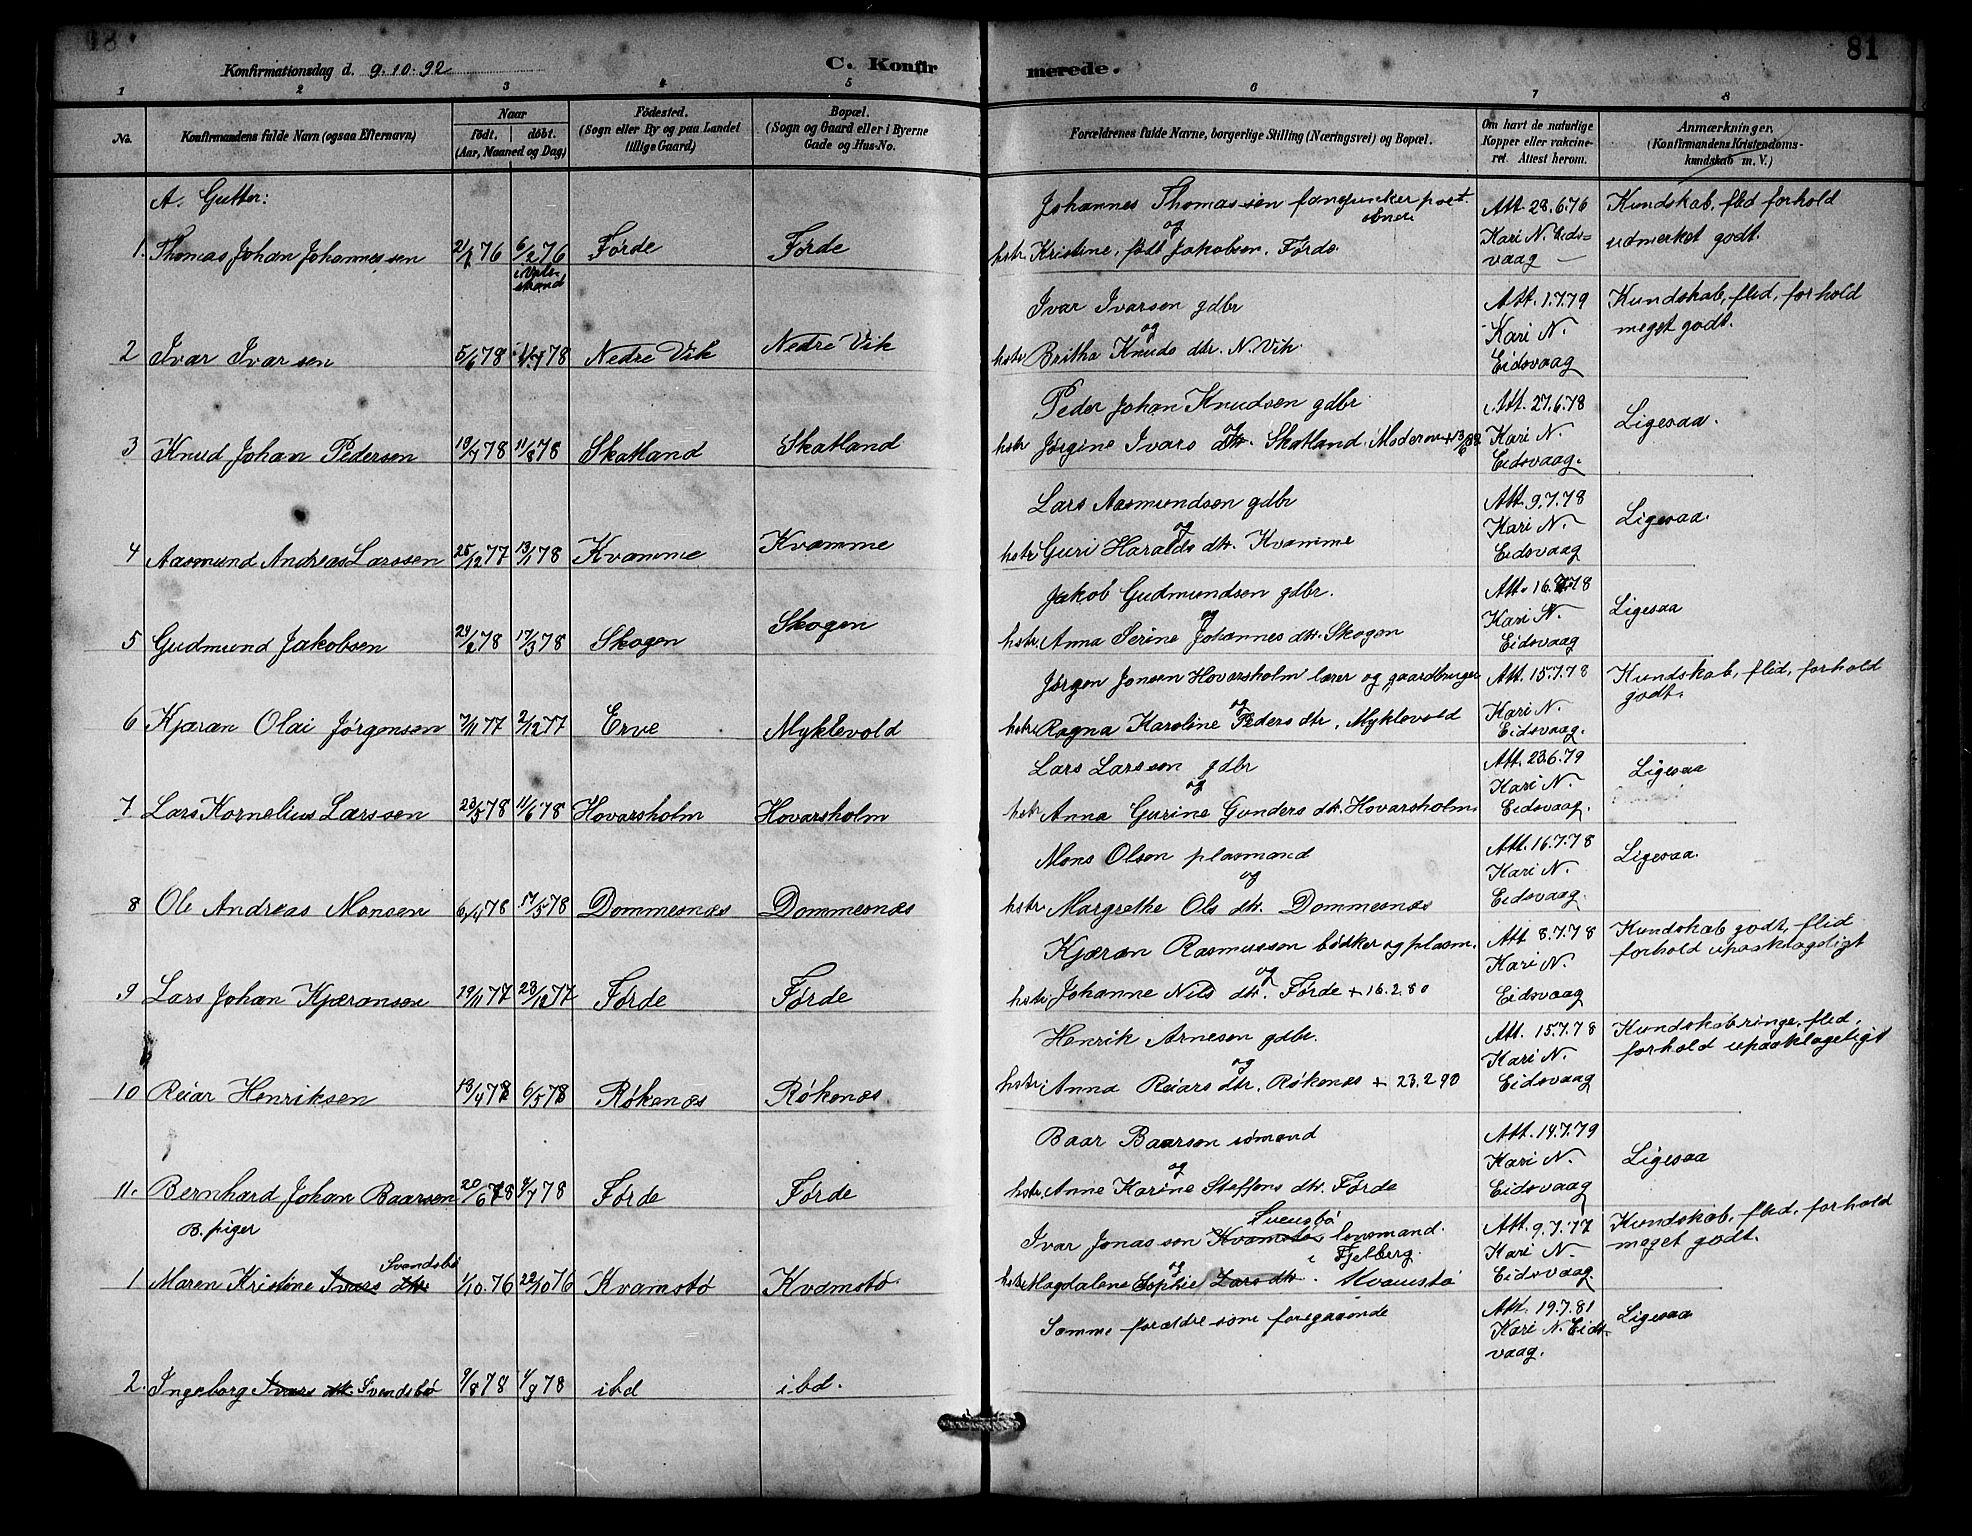 81
Konfirmationsdag d. 9.10.92
C. Konfirmerede.
1 2 3 4 5 6 7 8
No.
Konfirmandens fulde Navn (ogsaa Efternavn)
Naar
født, døbt.
(Aar, Maaned og Dag)
Födested.
(Sogn eller By og paa Landet
tillige Gaard)
Bopæl.
(Sogn og Gaard eller i Byerne
Gade og Hus-No.
Forældrenes fulde Navne, borgerlige Stilling (Næringsvei) og Bopæl.
Om havt de naturlige
Kopper eller vakcine-
ret. Attest herom.
Anmærkninger.
(Konfirmandens Kristendoms-
kundskab m. V.)
A. Gutter:
1. Thomas Johan Johannessen 6/2 76 Førde Førde
Johannes Thomassen
og
hstr Kristine, født Jakobsen. Førde
Att. 28.6.76
Kari N. Eids-
vaag
Kundskab, flid forhold
udmerket godt.
2 Ivar Ivarsen Nedre Vik Nedre Vik
Ivar Ivarsen gdbr
og
hstr Britha Knuds dtr. N. Vik
Att. 1.7.79
Kari N.
Eidsvaag
Kundskab, flid, forhold
meget godt.
3 Knud Johan Pedersen 19/7 78 11/8 78 Skatland Skatland
Peder Johan Knudsen gdbr
og
hstr Jørgine Ivars dtr. Skatland.
Att. 27.6.78
Kari N.
Eidsvaag.
Ligesaa.
4 Aasmund Andreas Larssen 25/12 77 13/1 78 Kvamme Kvamme
Lars Aasmundsen gdbr
og
hstr Guri Haralds dtr. Kvamme
Att. 9.7.78
Kari N.
Eidsvaag
Ligesaa.
5 Gudmund Jakobsen 24/2 78 17/3 78 Skogen Skogen
Jakob Gudmundsen gdbr.
og
hstr. Anna Serine Johannes dtr. Skogen
Att. 16.7.78
Kari N.
Eidsvaag
Ligesaa
6 Kjæran Olai Jørgensen 7/11 77 2/12 77 Erve Myklevold
Jørgen Jonsen Hovarsholm lærer og gaardbruger
og
hstr. Ragna Karoline Peders dtr, Myklevold
Att. 15.7.78
Kari N.
Eidsvaag.
Kundskab, flid, forhold
godt.
7 Lars Kornelius Larssen 23/5 78 11/6 78 Hovarsholm Hovarsholm
Lars Larssen gdbr
og
hstr Anna Gurine Gunders dtr. Hovarsholm.
Att. 23.6.79
Kari N.
Eidsvaag.
Ligesaa
8 Ole Andreas Monsen 6/4 78 17/5 78 Dommesnæs Dommesnæs
Mons Olsen plasmand
og
hstr Margrethe Ols dtr. Dommesnæs
Att. 16.7.78
Kari N.
Eidsvaag.
Ligesaa.
9 Lars Johan Kjæransen 19/11 77 23/12 77 Førde Førde
Kjæran Rasmussen bødker og plasm.
og
hstr, Johanne Nils dtr. Førde + 16.2.80
Att 8.7.78
Kari N.
Eidsvaag
Kundskab godt, flid
forhold upaaklageligt
10 Reiar Henriksen 13/4 78 6/5 78 Røkenæs Røkenæs
Henrik Arnesen gdbr.
og
hstr. Anna Reiars dtr. Røkenæs + 23.2.90
Att. 15.7.78
Kari N.
Eidsvaag
Kundskab ringe, flid,
forhold upaaklageligt
11. Bernhard Johan Baarsen 20/6 78 4/7 78 Førde Førde
Baar Baarsen sømand
og
hstr. Anne Karine Steffens dtr. Førde
Att. 14.7.79
Kari N.
Eidsvaag
Ligesaa
B. piger
1 Maren Kristine Ivars dtr. Svendsbø 1/10.76 22/10 76 Kvamstø Kvamstø
Ivar Jonassen Kvamstø Svensbø lensmand
i Fjelberg.
og
hstr Magdalene Sophie Lars dtr. Kvamstø
Att. 9.7.77
Kari N.
Eidsvaag.
Kundskab, flid, forhold
meget godt.
2. Ingeborg Ivars dtr. Svendsbø 9/8 78 1/9 78 ibd ibd.
Samme forældre som foregaaende
Att. 19.7.81
Kari N. Eids-
vaag.
Ligesaa